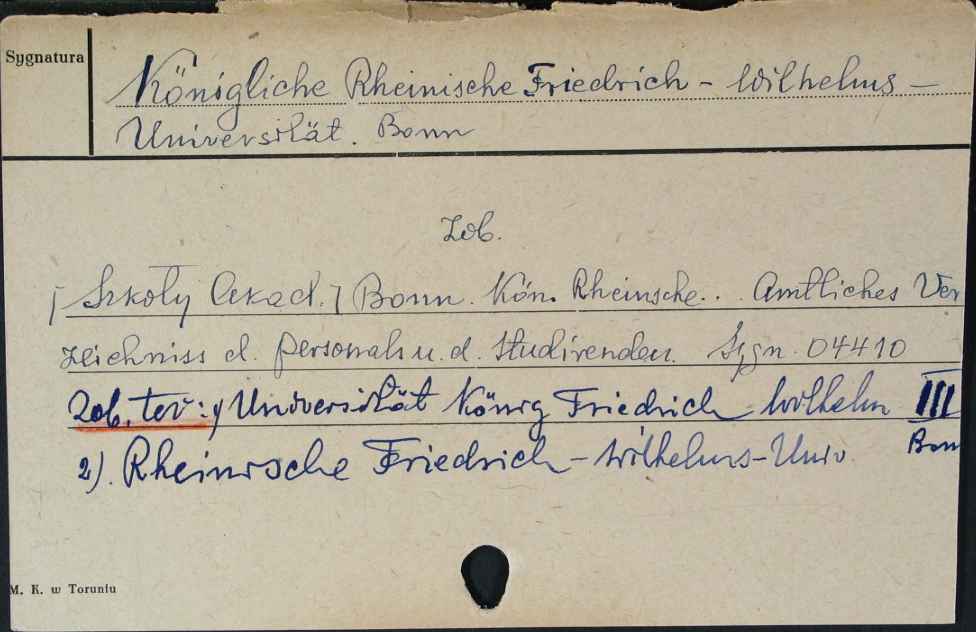 Sygnatura
Königliche Rheinische Friedrich - Wilhelms -
Universität. Bonn
Zob.
[Szkoły Akad.] Bonn. Kön. Rheinsche.. Amtliches Ver
zeichniss d. Personals u. d. Studirenden. Sygn. 04410
Zob. też: 1) Universität König Friedrich Wilhelm III
Bonn
2). Rheinische Friedrich - Wilhelms - Univ.
M. K. w Toruniu